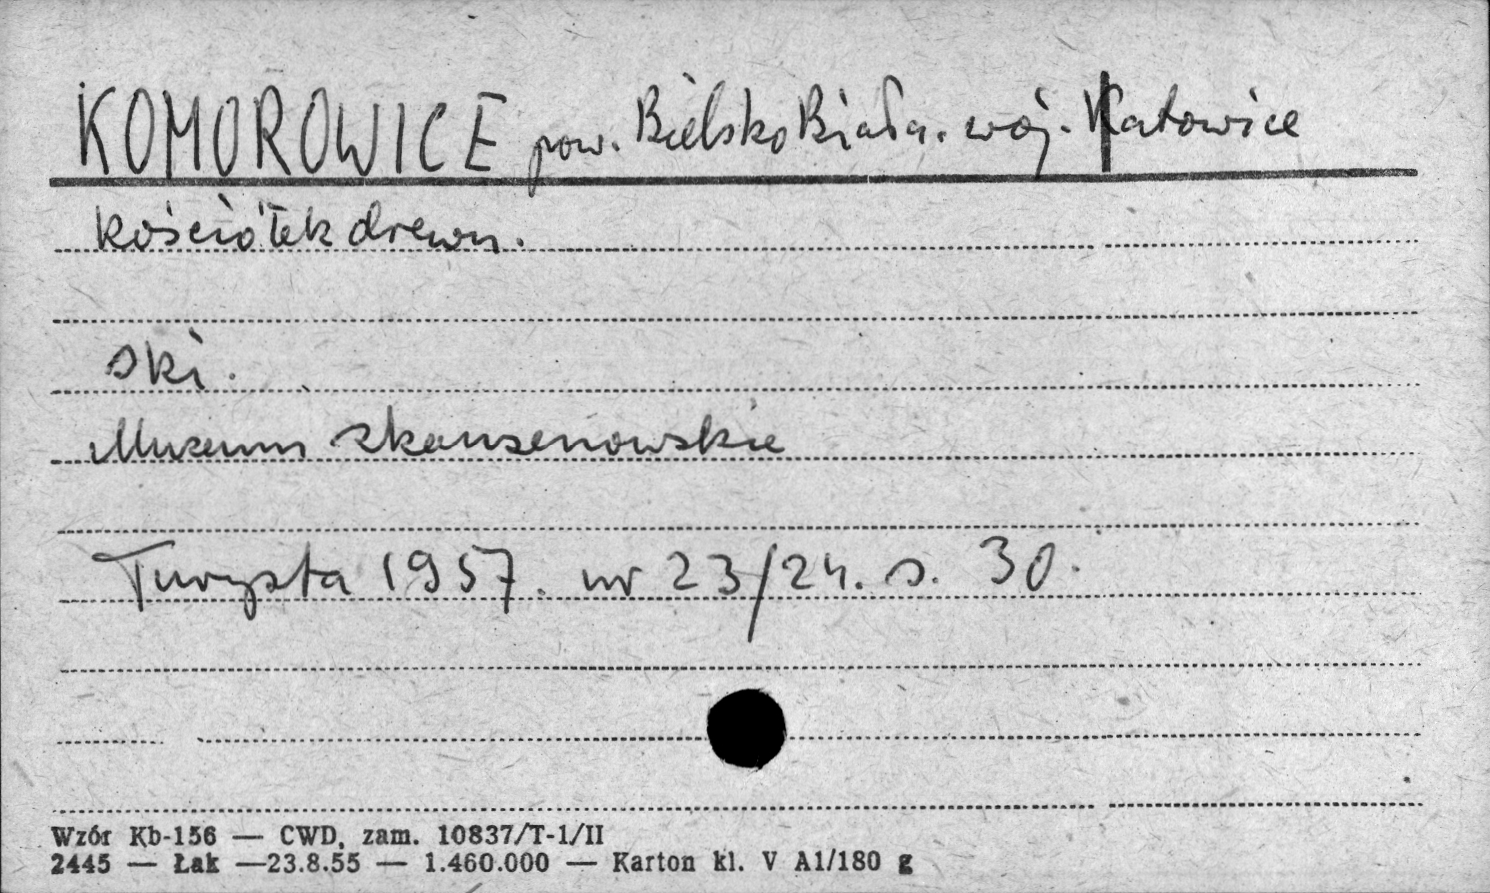 KOMOROWICE pow. Bielsko Biała. woj. Katowice
kościółek drewn.
ski.
Muzeum skansenowskie
Turysta 1957. nr 23/24. s. 30.
Wzór Kb-156 — CWD, zam. 10837/T-1/II
2445 — Łak —23.8.55 — 1.460.000 — Karton kl. V A1/180 g